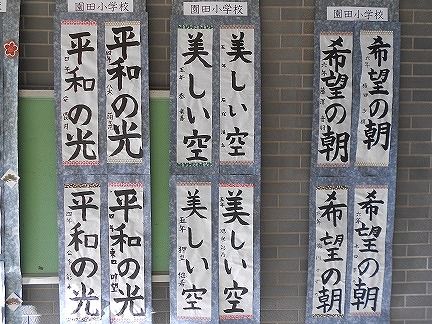 園田小学校
園田小学校
園田小学校
平和の光
平和の光
美しい空
美しい空
希望の朝
希望の朝
平和の光
平和の光
美しい空
美しい空
希望の朝
希望の朝